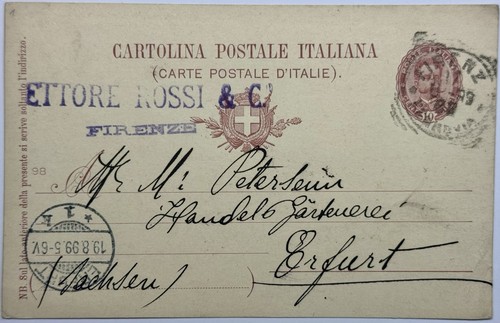 CARTOLINA POSTALE ITALIANA
(CARTE POSTALE D'ITALIE).
ETTORE ROSSI & C.
FIRENZE
10
98
NB. Sul lato anteriore della presente si scrive soltanto l'indirizzo.
Petersenn
Handels Gärtnerei
Erfurt
(Sachsen)
19.8.99.5-6V.
* 1 k